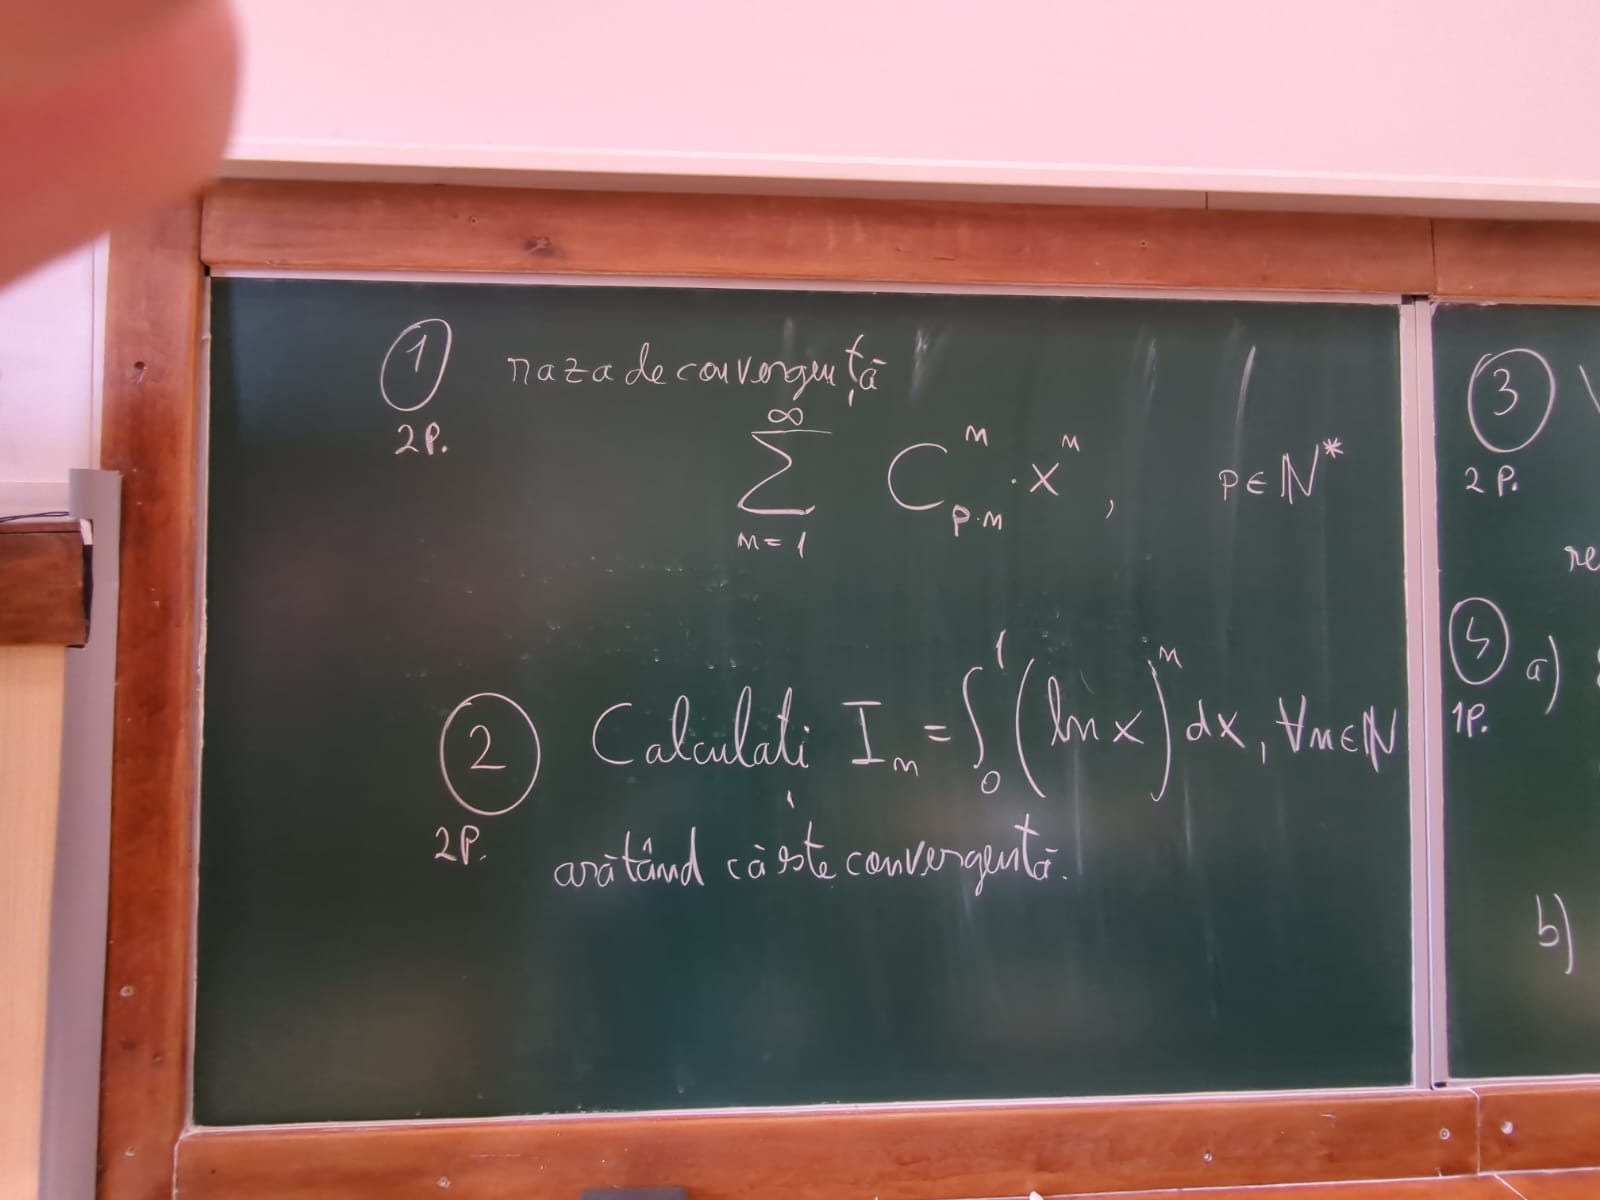 1 raza de convergență
2P.
∞
∑ C_{p·n}^{n} · x^{n} , p∈ℕ*
n=1
2 Calculați I_n = ∫_0^1 (ln x)^n dx, ∀n∈ℕ
2P.
arătând că este convergentă.
3
2P.
re
1P.
a)
b)